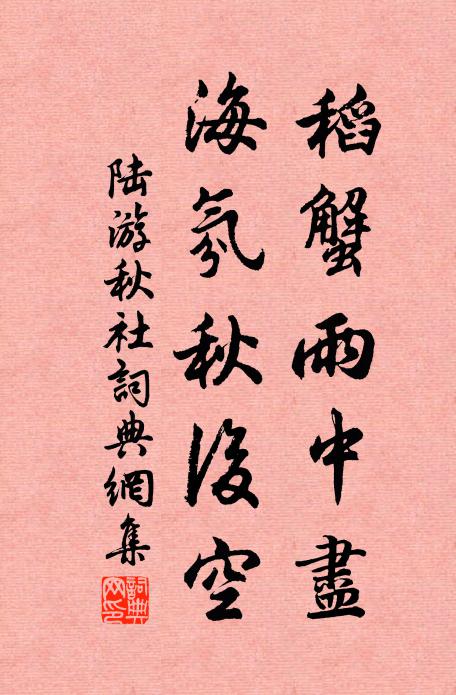 稻蟹雨中盡
海氛秋後空
陸游秋社詞典網集
詞典網印